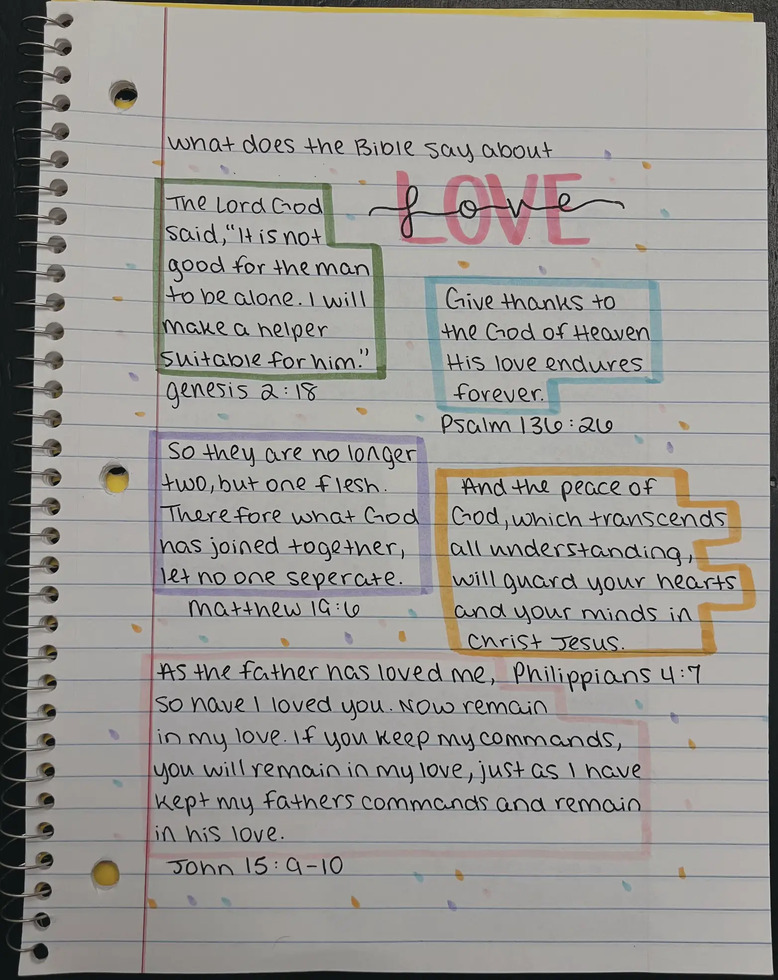 what does the Bible say about
LOVE
love
The Lord God
said, "It is not
good for the man
to be alone. I will
make a helper
suitable for him."
genesis 2:18
Give thanks to
the God of Heaven
His love endures
forever.
Psalm 136:26
So they are no longer
two, but one flesh.
Therefore what God
has joined together,
let no one seperate.
matthew 19:6
And the peace of
God, which transcends
all understanding,
will guard your hearts
and your minds in
Christ Jesus.
Philippians 4:7
As the father has loved me,
so have I loved you. Now remain
in my love. If you keep my commands,
you will remain in my love, just as I have
kept my fathers commands and remain
in his love.
John 15:9-10